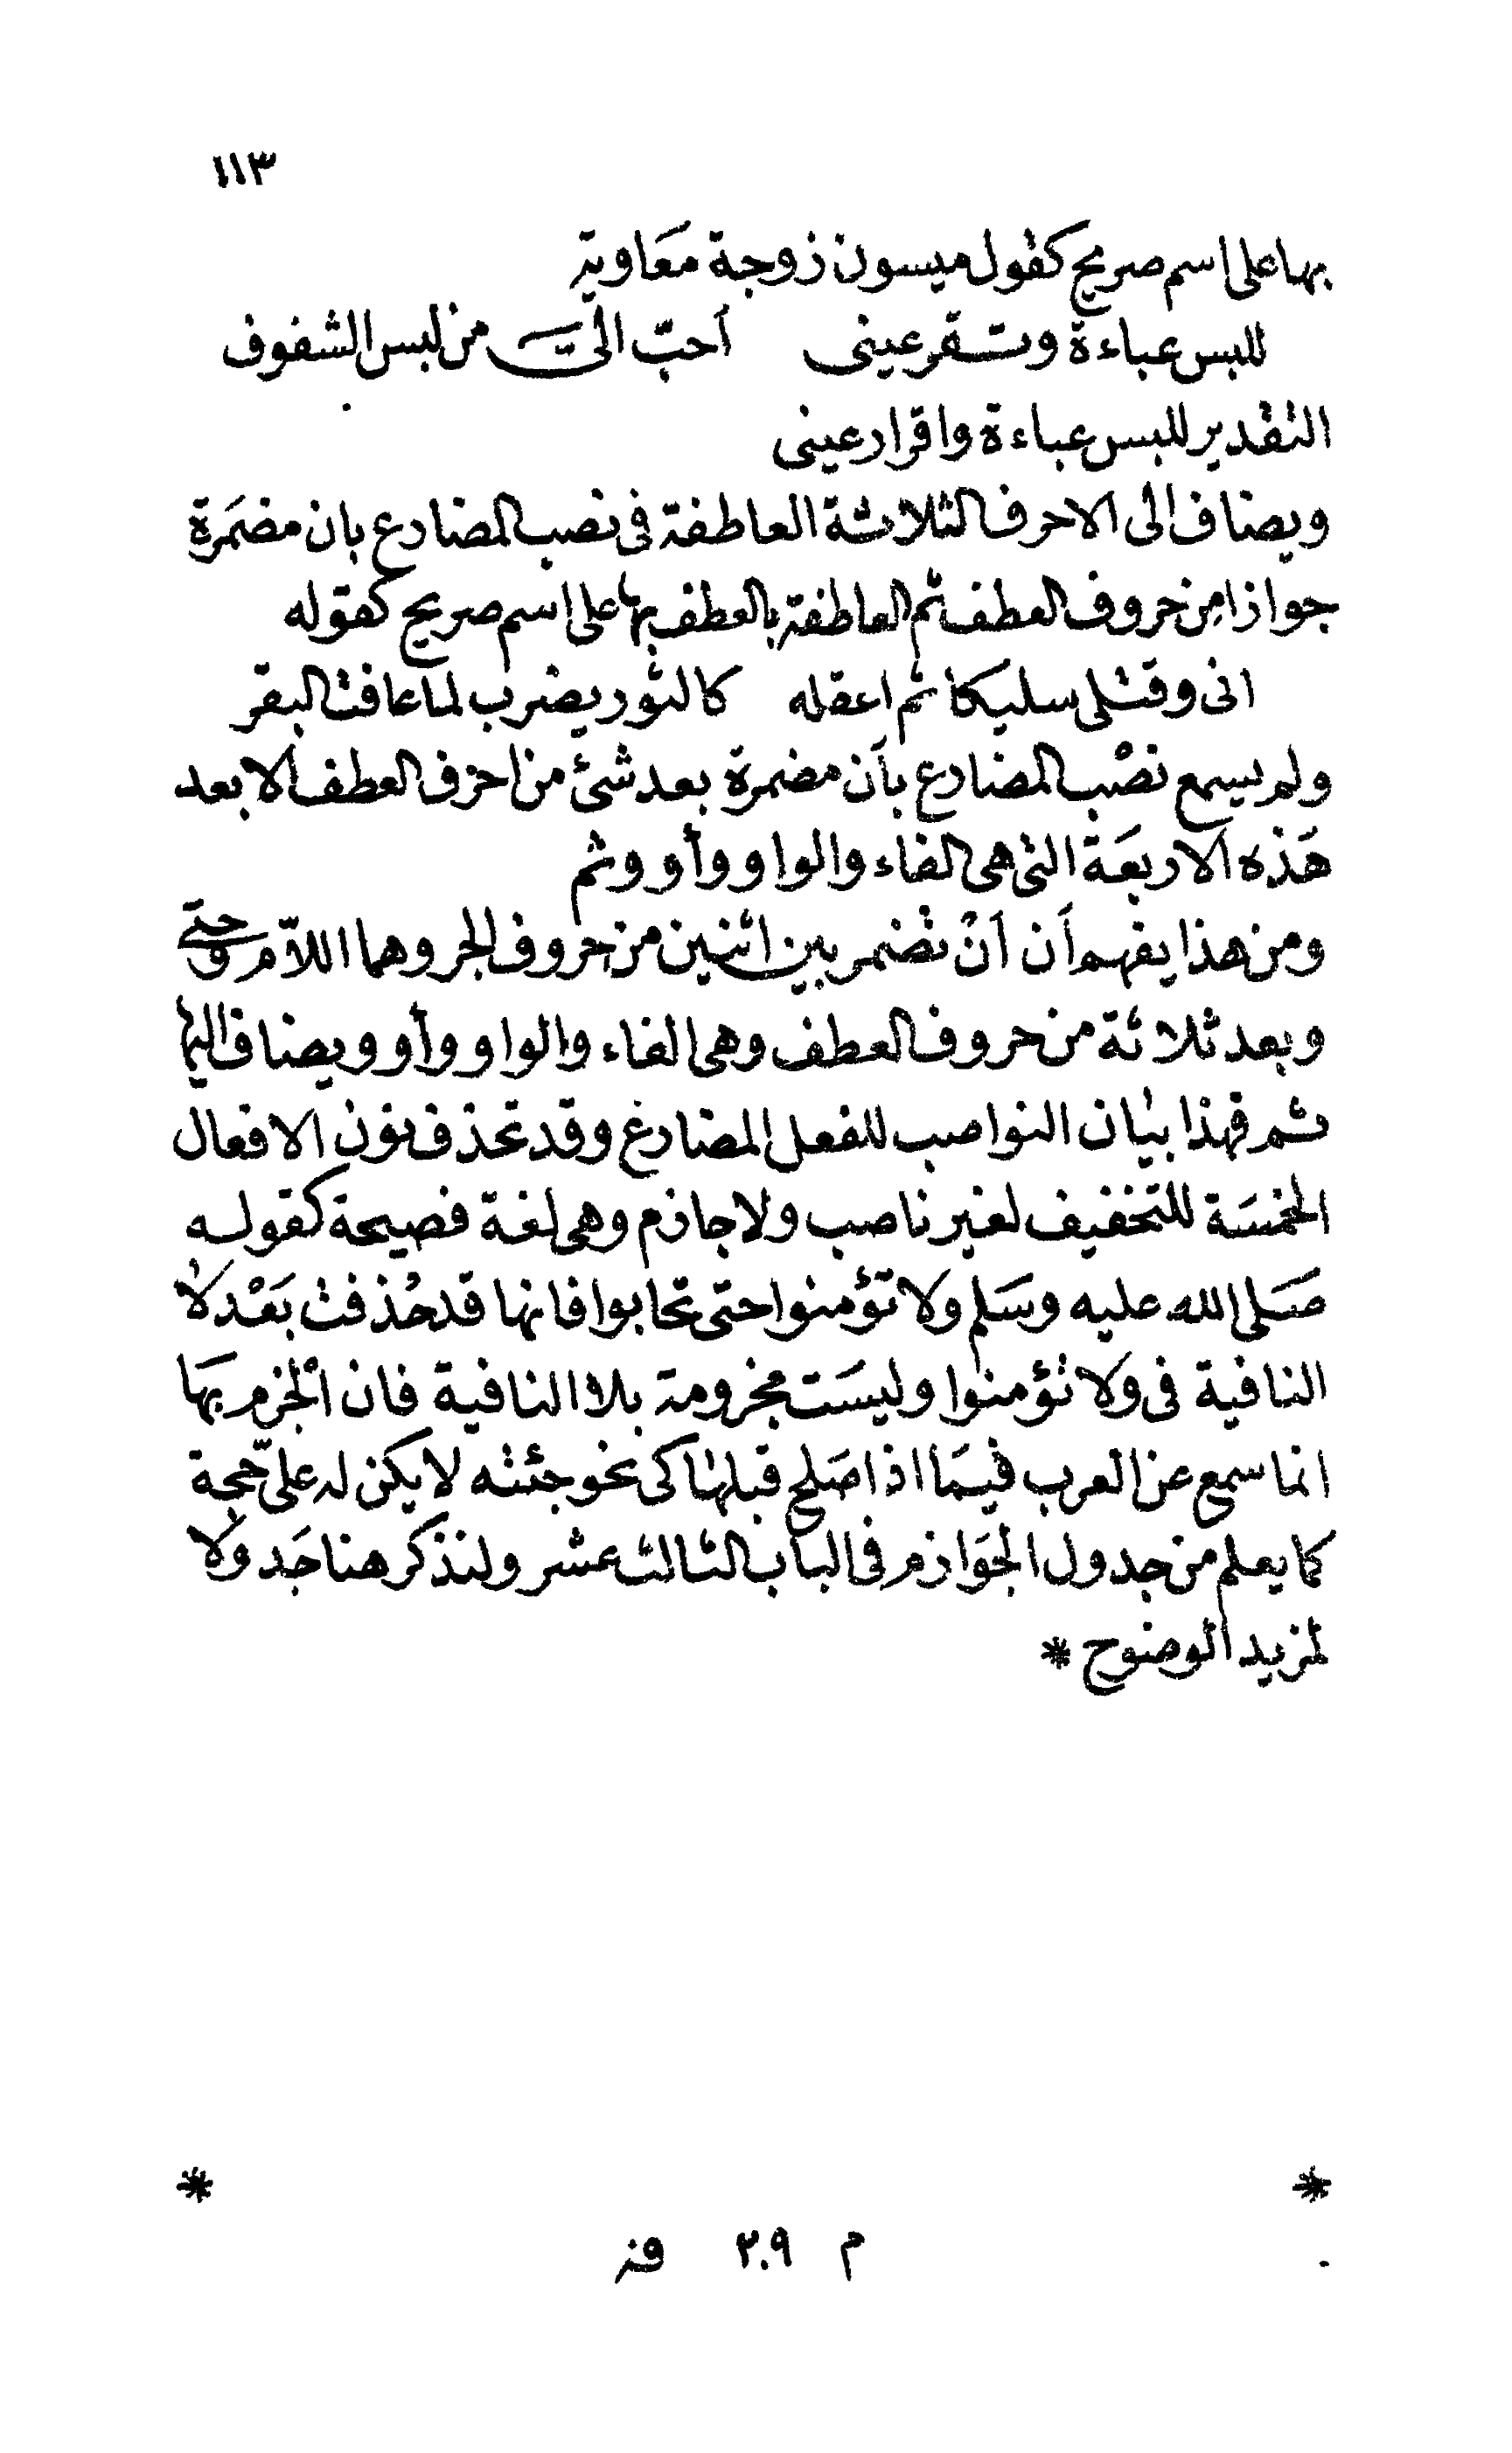 ١١٣
بها على اسم صريح كقول ميسون زوجة معاوية
للبس عباءة وتقر عينى أحبّ الىّ من لبس الشفوف
التقدير للبس عباءة واقرار عينى
ويضاف الى الاحرف الثلاثة العاطفة فى نصب المضارع بان مضمَرة
جوازا من حروف العطف ثم العاطفة بالعطف بها على اسم صريح كقوله
انى وقتلى سليكا ثم اعقله كالثور يضرب لما عافت البقر
ولم يسمع نصْب المضارع بأن مضمرة بعد شئ من احرف العطف الا بعد
هَذه الاربعَة التى هى الفاء والواو وأو وثم
ومن هذا يفهم أن أنْ تضمر بين اثنين من حروف الجر وهما اللاّم وحتّى
وبعد ثلاثة من حروف العطف وهى الفاء والواو وأو ويضاف اليها
ثم فهذا بيان النواصب للفعل المضارع وقد تحذف نون الافعال
الخمسَة للتخفيف لغير ناصب ولا جازم وهى لغة فصيحة كقوله
صَلى الله عليه وسَلم ولا تؤمنوا حتى تحابوا فانها قد حُذفت بَعْد لا
النافية فى ولا تؤمنوا وليسَت مجزومة بلا النافية فان الْجزم بهَا
انما سمع عن العرب فيمَا اذا صَلح قبلها كى نحو جئته لا يكن له علىّ حجة
كما يعلم من جدول الجوَازم فى الباب الثالث عشر ولنذكر هنا جَدولا
لمزيد الوضوح *
* *
م ٢٠٩ قز